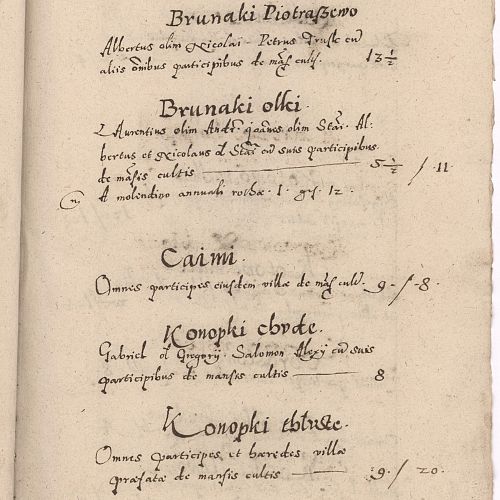 Brunaki Piotraszewo
Albertus olim Nicolai - Petrus Trusk cū
aliis om̄ibus participibus de māsis cultis. 13 ½
Brunaki olki.
Laurentius olim Andr. Joānes olim Stāi. Al-
bertus et Nicolaus ol Stāi cū suis participibus
de māsis cultis 5 ½ / 11.
A molendino annuali rothae . 1 . gr. 12 .
Caimi.
Omnes participes eiusdem villae de māsis cultis. 9. / .8.
Konopki chude.
Gabriel ol Gregorij. Salomon Alexy cū suis
participibus de mansis cultis 8
Konopki tłuste.
Omnes participes et haeredes villae
praefatae de mansis cultis .9. / 20.